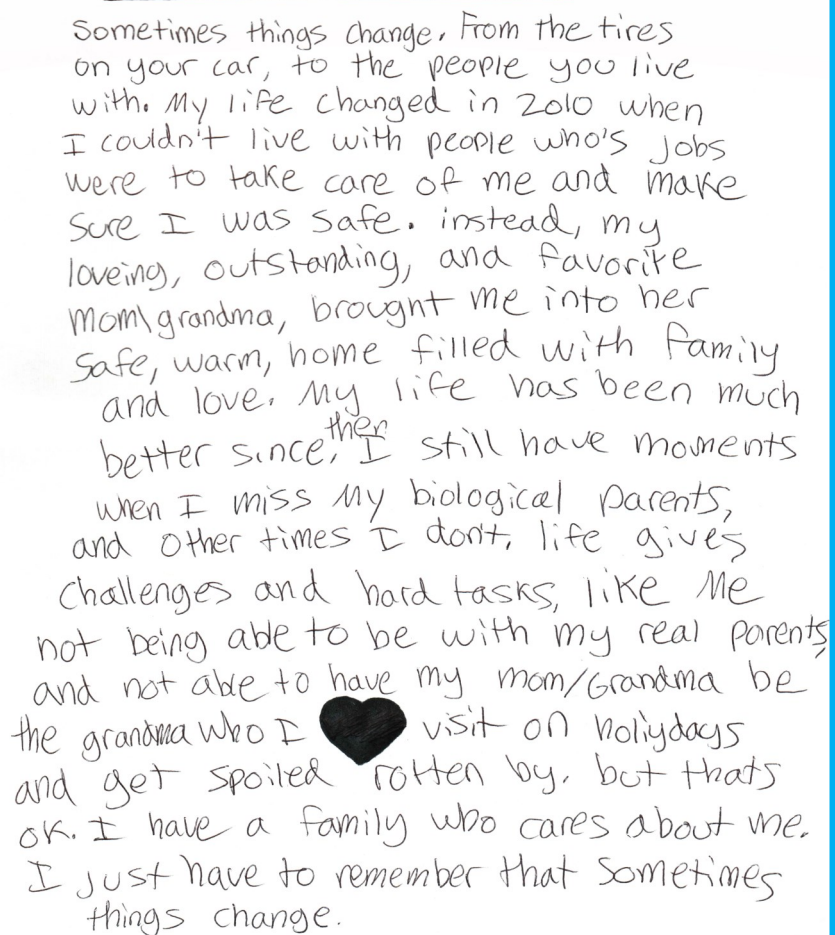 Sometimes things change. From the tires
on your car, to the people you live
with. My life changed in 2010 when
I couldn't live with people who's jobs
were to take care of me and make
sure I was safe. instead, my
loveing, outstanding, and favorite
mom\grandma, brought me into her
safe, warm, home filled with family
and love. My life has been much
better since, then I still have moments
when I miss my biological parents,
and other times I don't. life gives
challenges and hard tasks, like me
not being able to be with my real parents,
and not able to have my mom/Grandma be
the grandma who I visit on holiydays
and get spoiled rotten by. but thats
ok. I have a family who cares about me.
I just have to remember that sometimes
things change.